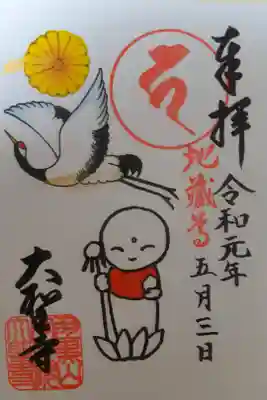 奉拝
令和元年
五月三日
地蔵尊
大聖寺